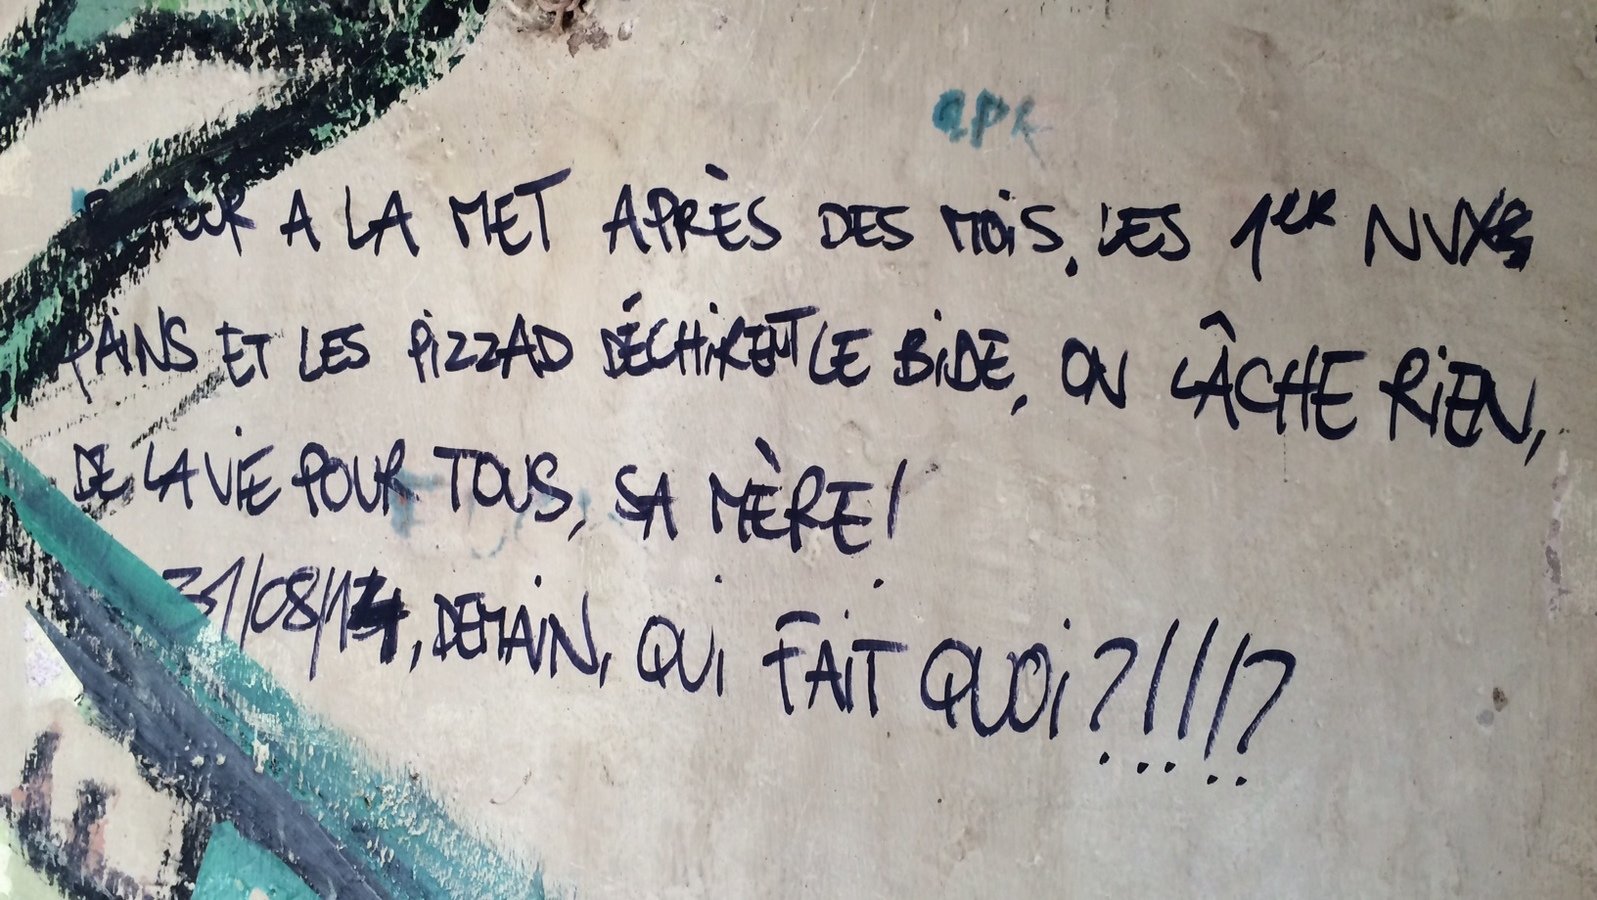 A LA MET APRÈS DES MOIS, LES 1ER NVXS
PAINS ET LES PIZZAD DÉCHIRENT LE BIDE, ON LÂCHE RIEN,
DE LA VIE POUR TOUS, SA MÈRE!
DEMAIN, QUI FAIT QUOI ?!!!?